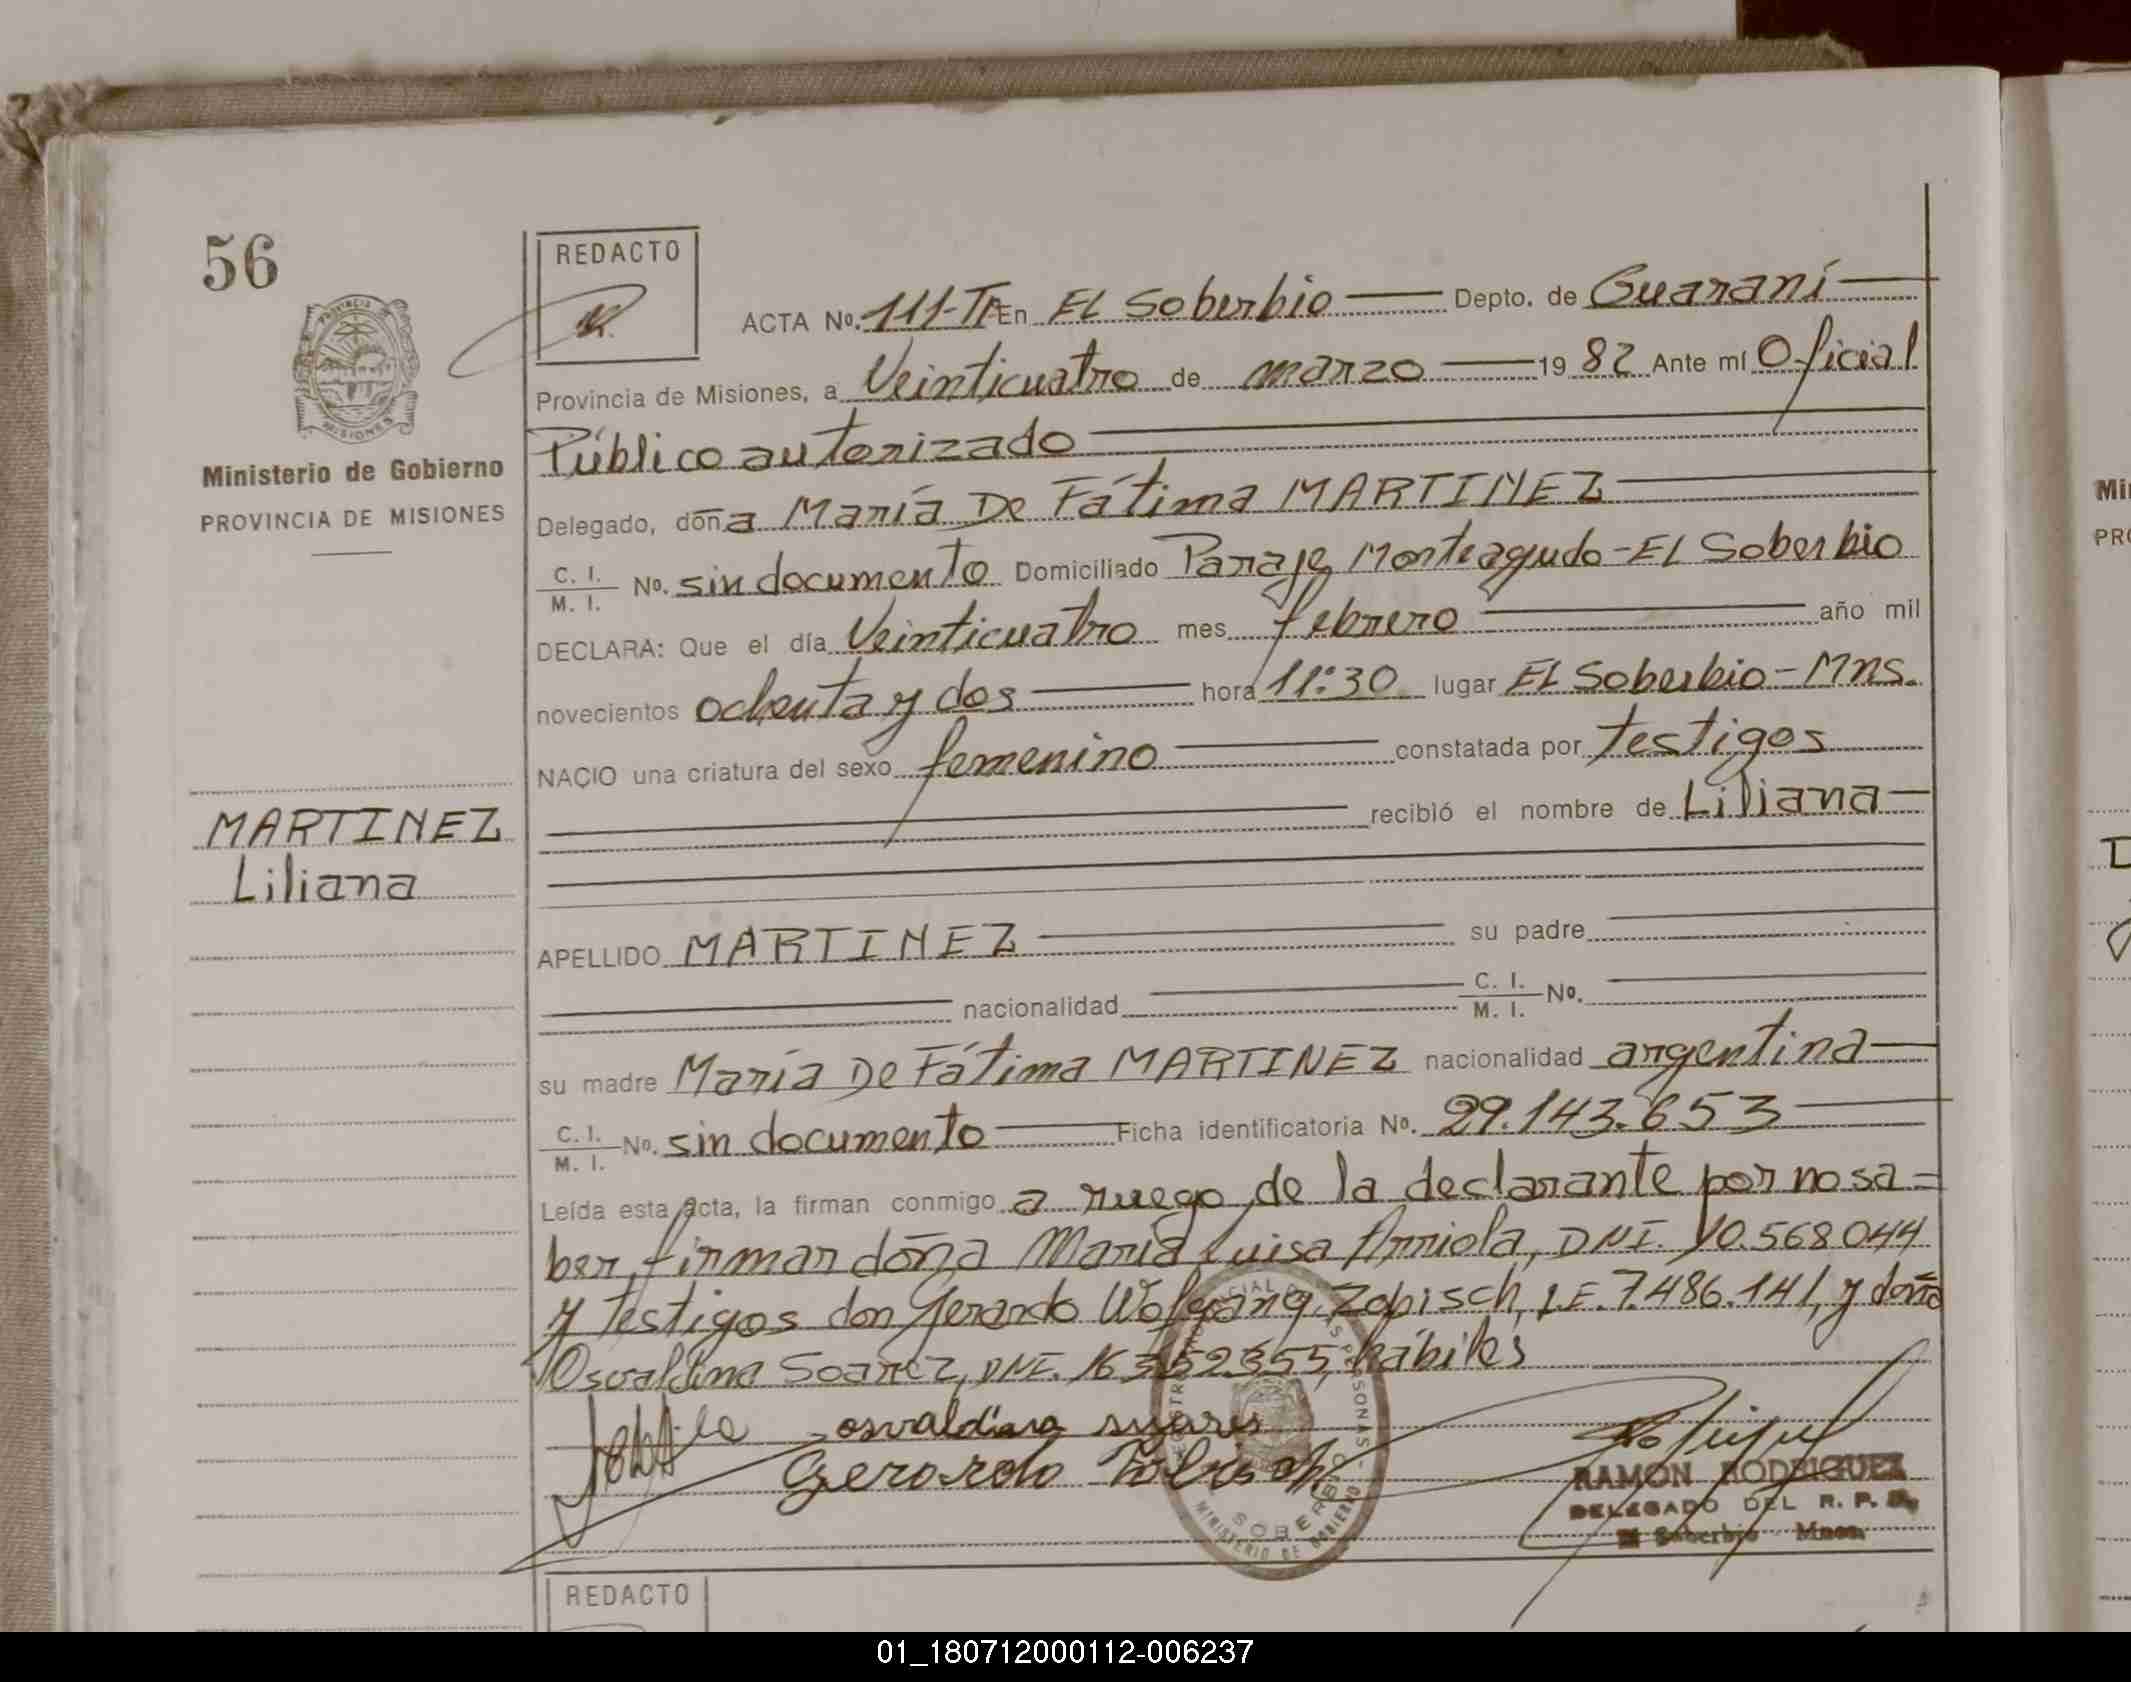 56
REDACTO
ACTA No. 111-TI En EL Soberbio Depto. de Guaraní
Provincia de Misiones, a Veinticuatro de marzo 1982 Ante mí Oficial
Público autorizado
Ministerio de Gobierno
PROVINCIA DE MISIONES
Delegado, doña María De Fátima MARTINEZ
C. I. / M. I. No. sin documento Domiciliado Paraje Monteagudo - EL Soberbio
DECLARA: Que el día Veinticuatro mes febrero año mil
novecientos ochenta y dos hora 11:30 lugar EL Soberbio - Mns.
NACIO una criatura del sexo femenino constatada por testigos
recibió el nombre de Liliana
MARTINEZ
Liliana
APELLIDO MARTINEZ su padre
nacionalidad C. I. / M. I. No.
su madre María De Fátima MARTINEZ nacionalidad argentina
C. I. / M. I. No. sin documento Ficha identificatoria No. 29.143.653
Leída esta acta, la firman conmigo a ruego de la declarante por no sa=
ber firmar doña María Luisa Arriola, DNI. 10.568044
y testigos don Gerardo Wolfgang Zopisch, L.E. 7.486.141, y doña
Osvaldina Soarez, DNI. 16352355, hábiles
osvaldina suares
Gerardo
RAMON RODRIGUEZ
DELEGADO DEL R. P.
El Soberbio - Mnes.
SOBERBIO
MINISTERIO DE GOBIERNO
REDACTO
Mi
PR
01_180712000112-006237